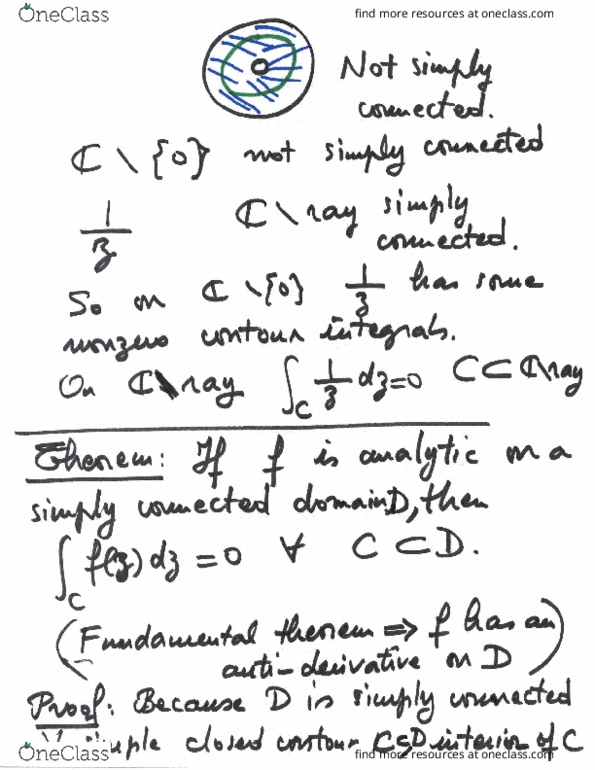 OneClass
find more resources at oneclass.com
Not simply
connected.
ℂ \ {0} not simply connected
1/z ℂ \ ray simply
connected.
So on ℂ \ {0} 1/z has some
nonzero contour integrals.
On ℂ \ ray ∫_C 1/z dz = 0 C ⊂ ℂ \ ray
Theorem: If f is analytic on a
simply connected domain D, then
∫_C f(z) dz = 0 ∀ C ⊂ D.
(Fundamental theorem ⇒ f has an
anti-derivative on D)
Proof: Because D is simply connected
∀ simple closed contour C ⊂ D interior of C
OneClass
find more resources at oneclass.com